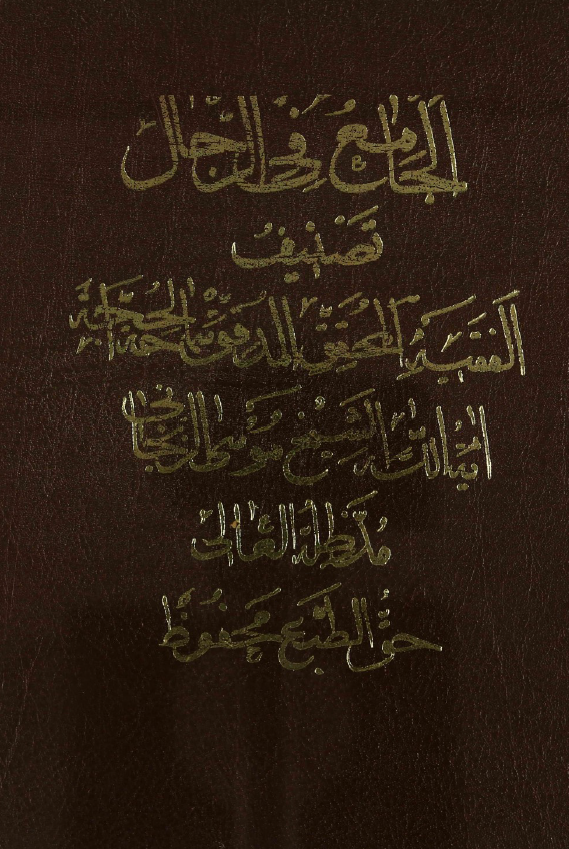 الجَامِعُ فِي الرِّجَال
تَصْنِيفُ
الفَقيهِ المُحَقِّقِ المُدَقِّقِ سَمَاحَةِ الحُجَّة
آيةُ اللّه الشيخ موسَى الزنجَاني
مُدَّ ظِلُّهُ العَالى
حقُ الطَّبع مَحفُوظ